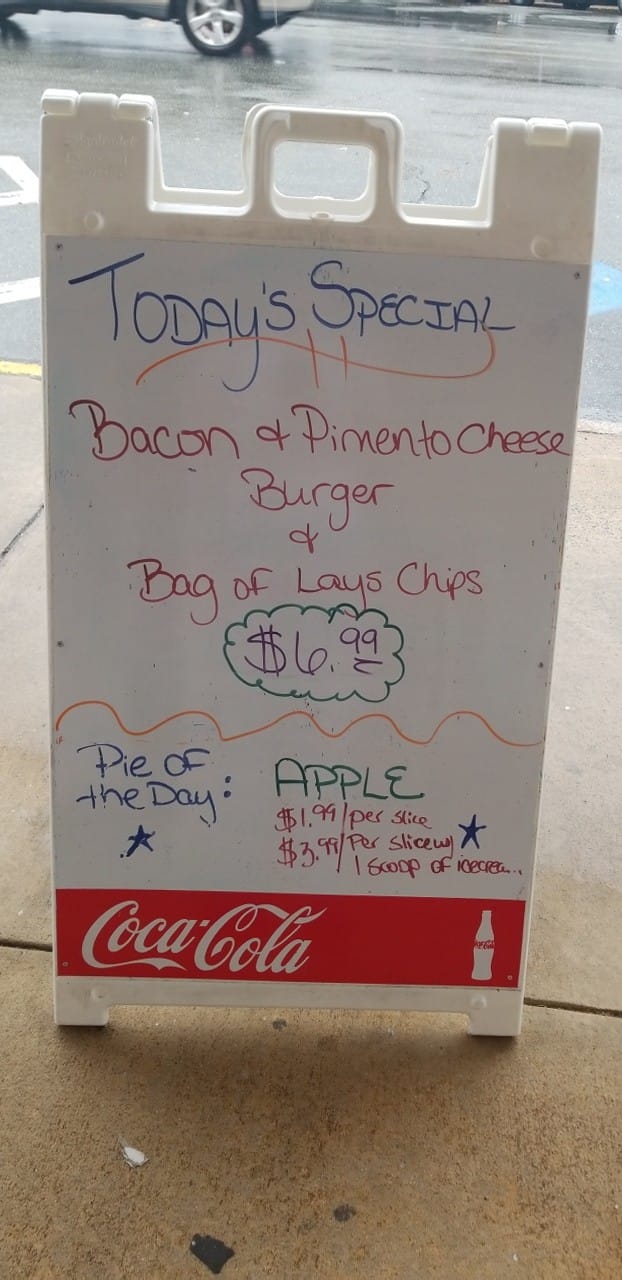 TODAY'S SPECIAL
Bacon & Pimento Cheese
Burger
&
Bag of Lays Chips
$6.99
Pie of
the Day:
APPLE
$1.99/per slice
$3.99/Per slice w/
1 scoop of icecrea...
Coca-Cola
Coca-Cola